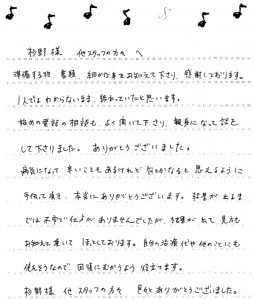 杉野様 他スタッフの方々 へ
準備する物、書類、細かな事までお知えて下さり、感謝しております。
1人ではわからないまま、終わっていたと思います。
始めの電話の相談も、よく聞いて下さり、親身になって話を
して下さりました。 ありがとうございました。
病気になって 辛いこともあるけれど 何とかなると 思えるように
手伝って頂き、本当にありがとうございます。結果が出るま
では不安で仕方がありませんでしたが、結果が出て、見方も
お知えて頂いて ほっとしております。自分の治療代や他のことにも
使えそうなので、回復にむかうよう 役立てます。
杉野様 他 スタッフの方々 色々とありがとうございました。